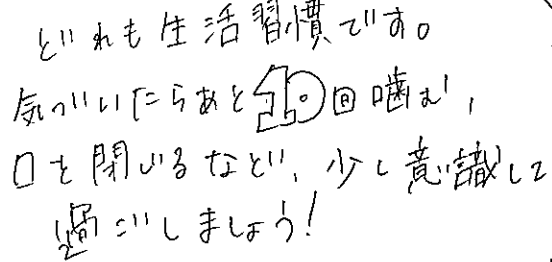 どれも生活習慣です。
気づいたらあと10回噛む,
口を閉じるなど、少し意識して
過ごしましょう!